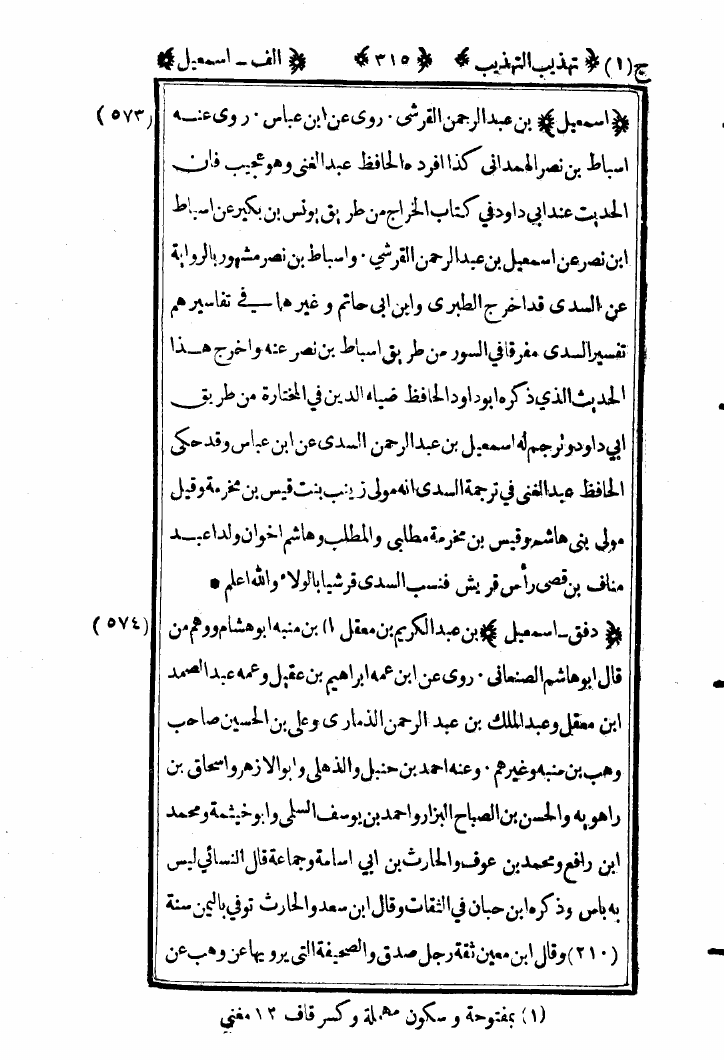 ج(١) ﴿ تهذيب التهذيب ﴾ ﴿ ٣١٥ ﴾ ﴿ الف - اسمعيل ﴾
(٥٧٣) ﴿ اسمعيل ﴾ بن عبد الرحمن القرشى · روى عن ابن عباس · روى عنه
اسباط بن نصر الهمدانى كذا افرده الحافظ عبد الغنى وهو عجيب فان
الحديث عند ابي داود في كتاب الخراج من طريق يونس بن بكير عن اسباط
ابن نصر عن اسمعيل بن عبد الرحمن القرشي · واسباط بن نصر مشهور بالرواية
عن السدى قد اخرج الطبرى وابن ابى حاتم و غيرهما في تفاسيرهم
تفسير السدى مفرقا في السور من طريق اسباط بن نصر عنه واخرج هذا
الحديث الذي ذكره ابو داود الحافظ ضياء الدين في المختارة من طريق
ابي داود وترجم له اسمعيل بن عبد الرحمن السدى عن ابن عباس وقد حكى
الحافظ عبد الغنى في ترجمة السدى انه مولى زينب بنت قيس بن مخرمة وقيل
مولى بنى هاشم وقيس بن مخرمة مطلبى والمطلب وهاشم اخوان ولدا عبد
مناف بن قصى رأس قريش فنسب السدى قرشيا بالولاء والله اعلم •
(٥٧٤) ﴿ دفق - اسمعيل ﴾ بن عبد الكريم بن معقل (١) بن منبه ابو هشام ووهم من
قال ابو هاشم الصنعانى · روى عن ابن عمه ابراهيم بن عقيل وعمه عبد الصمد
ابن معقل وعبد الملك بن عبد الرحمن الذمارى وعلى بن الحسين صاحب
وهب بن منبه وغيرهم · وعنه احمد بن حنبل والذهلى وابو الازهر واسحاق بن
راهويه والحسن بن الصباح البزار واحمد بن يوسف السلمى وابو خيثمة ومحمد
ابن رافع ومحمد بن عوف والحارث بن ابي اسامة وجماعة قال النسائي ليس
به باس وذكره ابن حبان في الثقات وقال ابن سعد والحارث توفي باليمن سنة
(٢١٠) وقال ابن معين ثقة رجل صدق والصحيفة التى يرويها عن وهب عن
(١) بمفتوحة و سكون مهملة وكسر قاف ١٢ مغني